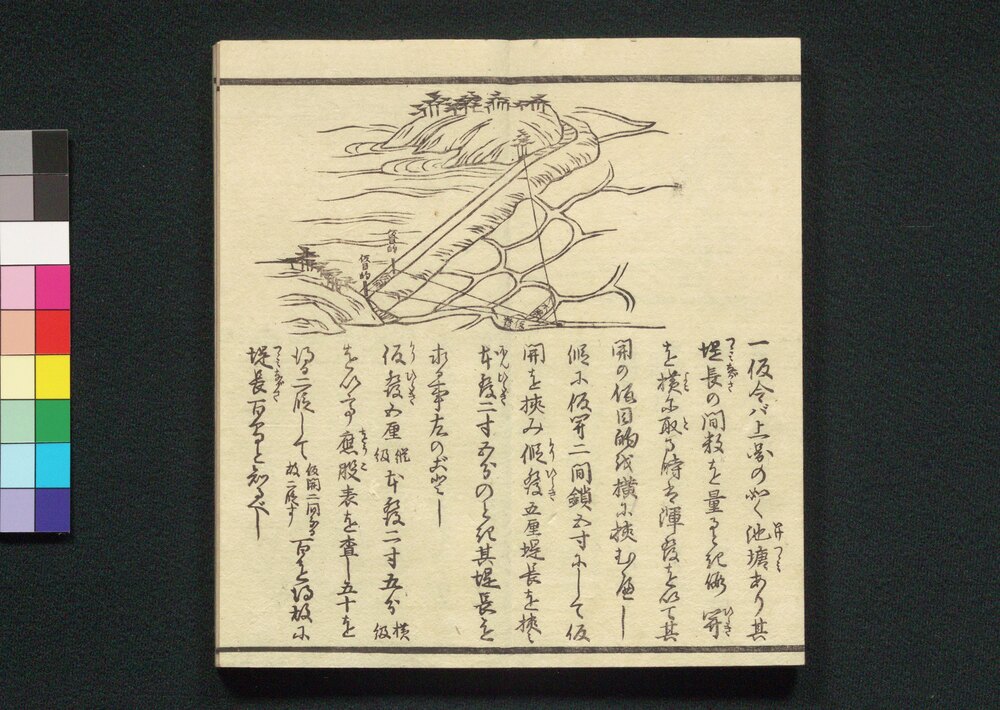 仮目的
仮目的
一仮令バ上図の如く池塘あり其
堤長の間数を量るとき術 開
を横に取る時は渾発を以て其
開の仮目的を横に挟むべし
仮に仮開二間鎖五寸にして仮
開を挟み仮発五厘堤長を挟
本発二寸五分のとき其堤長を
求る事左の如し
仮発五厘 縦級 本発二寸五分 横級
を以て 股表を査し五十を
得二段して 仮開二間 故二段す 百を得故に
堤長百間と知べし